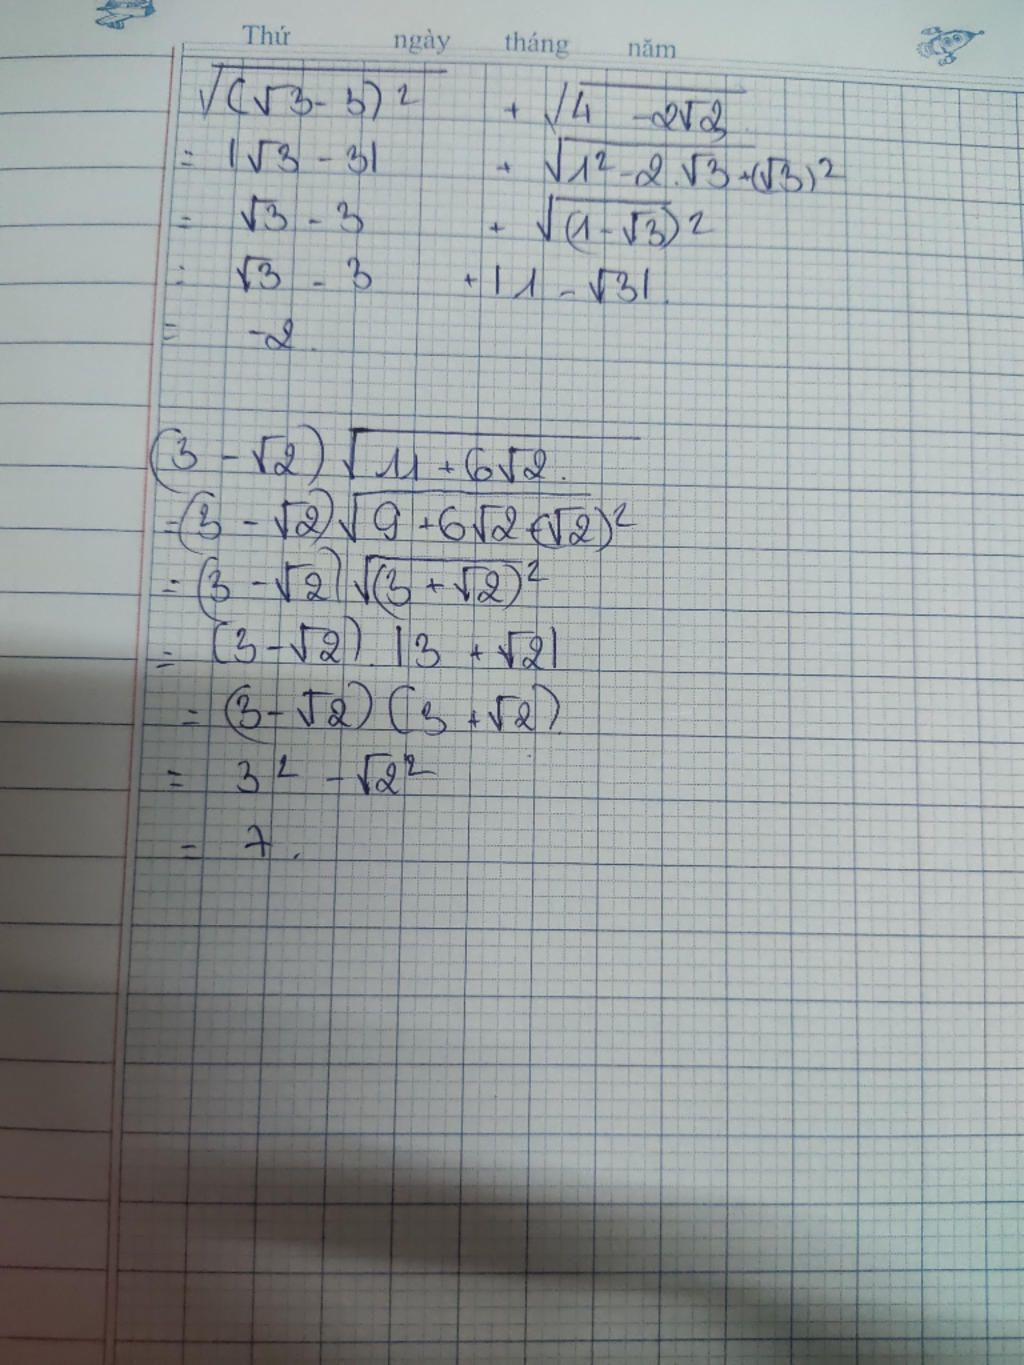 Thứ ngày tháng năm
√((√3 - 3)²) + √(4 - 2√2)
= |√3 - 3| + √(1² - 2.√3 + (√3)²)
= √3 - 3 + √((1 - √3)²)
= √3 - 3 + |1 - √3|
= -2.
(3 - √2) √(11 + 6√2).
= (3 - √2) √(9 + 6√2 + (√2)²)
= (3 - √2) √((3 + √2)²)
= (3 - √2). |3 + √2|
= (3 - √2) (3 + √2).
= 3² - √2²
= 7.